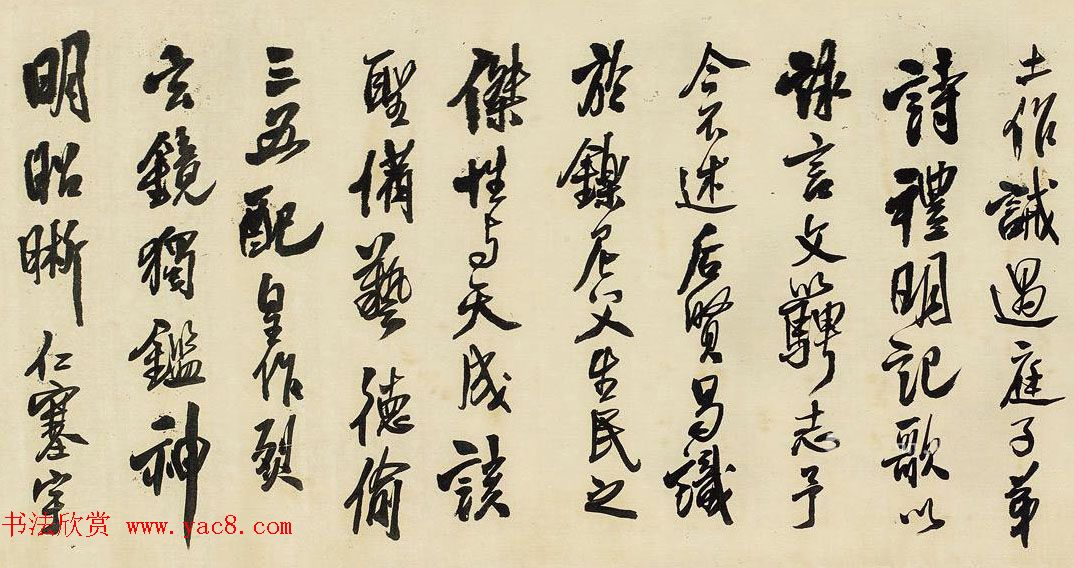 士作誡過庭子弟
詩禮明記歌以
詠言文以騁志予
今不述后賢曷識
於鑠尼父生民之
傑性与天成該
聖備藝德倫
三五配皇作烈
玄鏡獨鑑神
明昭晰仁塞宇
书法欣赏 www.yac8.com